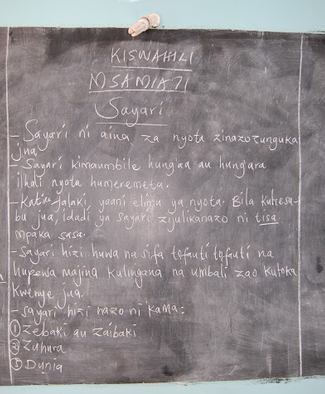 KISWAHILI
MSAMIATI
Sayari
- Sayari ni aina za nyota zinazozunguka
jua.
- Sayari kimaumbile hung'aa au hung'ara
ilhali nyota humeremeta.
- Katika falaki, yaani elimu ya nyota. Bila kuhesa-
bu jua, idadi ya sayari zijulikanazo ni tisa
mpaka sasa.
- Sayari hizi huwa na sifa tofauti tofauti na
hupewa majina kulingana na umbali zao kutoka
kwenye jua.
- Sayari hizi nazo ni kama:
① Zebaki au Zaibaki
② Zuhura
③ Dunia